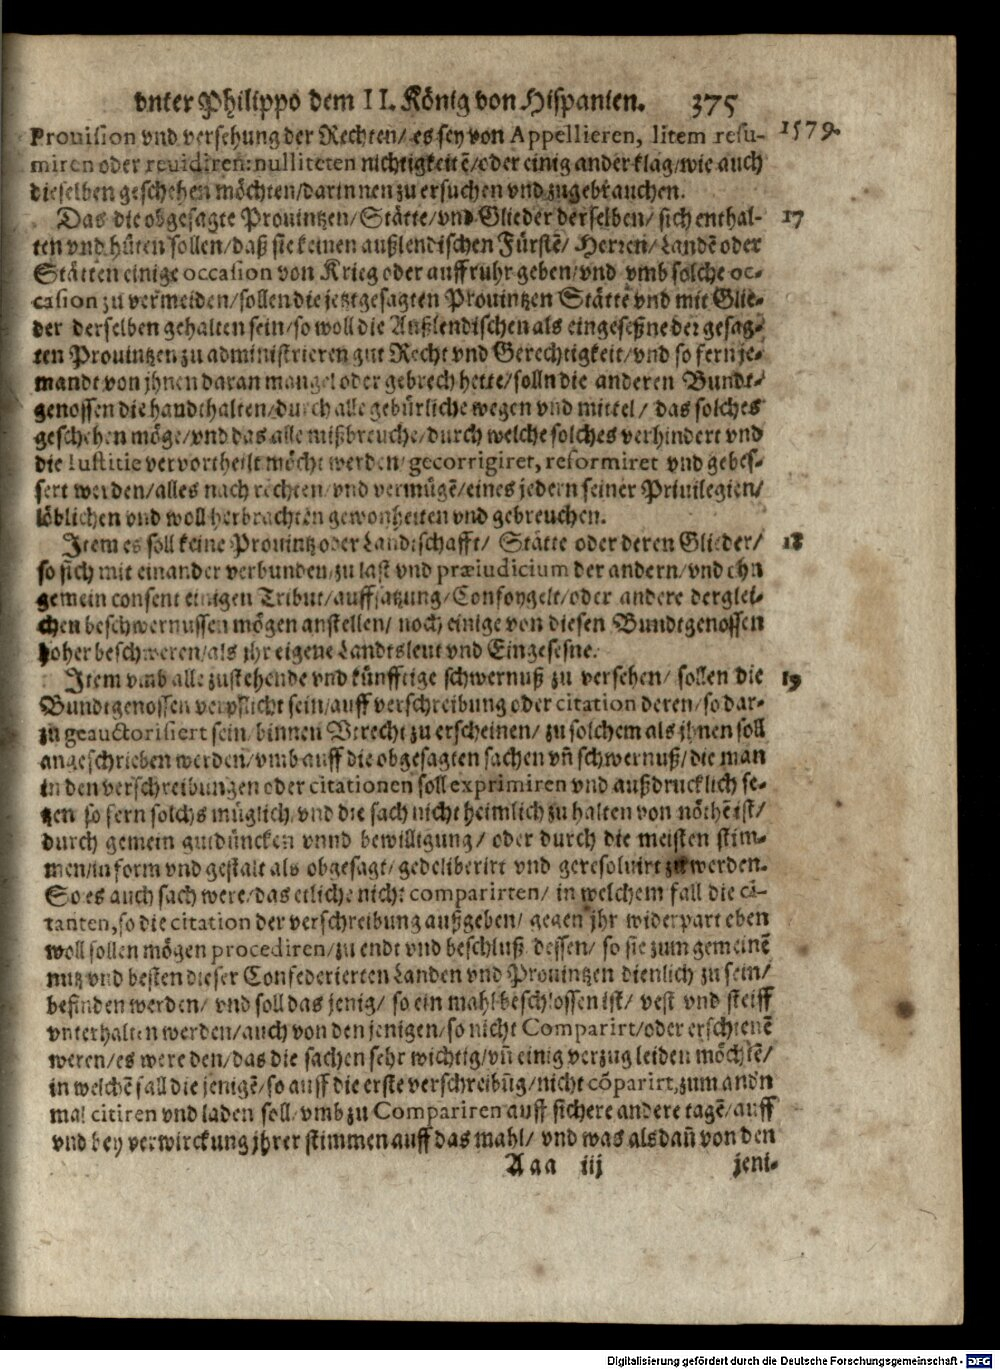 vnter Philippo dem II. König von Hispanien. 375
1579.
Prouision vnd versehung der Rechten/ es sey von Appellieren, litem resu-
miren oder reuidiren: nulliteten nichtigkeitē/oder einig ander klag/wie auch
dieselben geschehen möchten/darinnen zu ersuchen vnd zugebrauchen.
Das die obgesagte Prouintzen/Stätte/vnd Glieder derselben/ sich enthal- 17
ten vnd hüten sollen/daß sie keinen außlendischen Fürstē/ Herren/Landē oder
Stätten einige occasion von Krieg oder auffruhr geben/vnd vmb solche oc-
casion zu vermeiden/sollen die jetztgesagten Prouintzen Stätte vnd mit Glie-
der derselben gehalten sein/so woll die Außlendischen als eingeseßne der gesag-
ten Prouintzen zu administrieren gut Recht vnd Gerechtigkeit/vnd so fern je-
mandt von jhnen daran mangel oder gebrech hette/solln die anderen Bundt-
genossen die handthalten/durch alle gebürliche wegen vnd mittel/ das solches
geschehen möge/vnd das alle mißbreuche/durch welche solches verhindert vnd
die Iustitie vervortheilt möcht werden/gecorrigiret, reformiret vnd gebes-
sert werden/alles nach rechten/vnd vermügē/eines jedern seiner Priuilegien/
löblichen vnd woll herbrachten gewonheiten vnd gebreuchen.
Item es soll keine Prouintz oder Landtschafft/ Stätte oder deren Glieder/ 18
so sich mit einander verbunden/zu last vnd præiudicium der andern/vnd ohn
gemein consent einigen Tribut/auffsatzung/Confoygelt/oder andere derglei-
chen beschwernussen mögen anstellen/ noch einige von diesen Bundtgenossen
hoher beschweren/als jhr eigene Landtsleut vnd Eingesesne.
Item vmb alle zustehende vnd künfftige schwernuß zu versehen/ sollen die 19
Bundtgenossen verpflicht sein/auff verschreibung oder citation deren/so dar-
zu geauctorisiert sein/binnen Vtrecht zu erscheinen/ zu solchem als jhnen soll
angeschrieben werden/vmb auff die obgesagten sachen vñ schwernuß/die man
in den verschreibungen oder citationen soll exprimiren vnd außdrucklich se-
tzen so fern solchs müglich/vnd die sach nicht heimlich zu halten von nöthē ist/
durch gemein gutdüncken vnnd bewilligung/ oder durch die meisten stim-
men/in form vnd gestalt als obgesagt/gedeliberirt vnd geresoluirt zu werden.
So es auch sach were/das etliche nicht comparirten/ in welchem fall die ci-
tanten, so die citation der verschreibung außgeben/ gegen jhr widerpart eben
woll sollen mögen procediren/zu endt vnd beschluß dessen/ so sie zum gemeinē
nutz vnd besten dieser Confederierten Landen vnd Prouintzen dienlich zu sein/
befinden werden/ vnd soll das jenig/ so ein mahl beschlossen ist/ vest vnd steiff
vnterhalten werden/auch von den jenigen/so nicht Comparirt/oder erschienē
weren/es were den/das die sachen sehr wichtig/vñ einig verzug leiden möchtē/
in welchē fall die jenigē/so auff die erste verschreibūg/nicht cōparirt, zum andn
mal citiren vnd laden soll/vmb zu Compariren auff sichere andere tagē/auff
vnd bey verwirckung jhrer stimmen auff das mahl/ vnd was alsdañ von den
Aaa iij jeni-
Digitalisierung gefördert durch die Deutsche Forschungsgemeinschaft - DFG